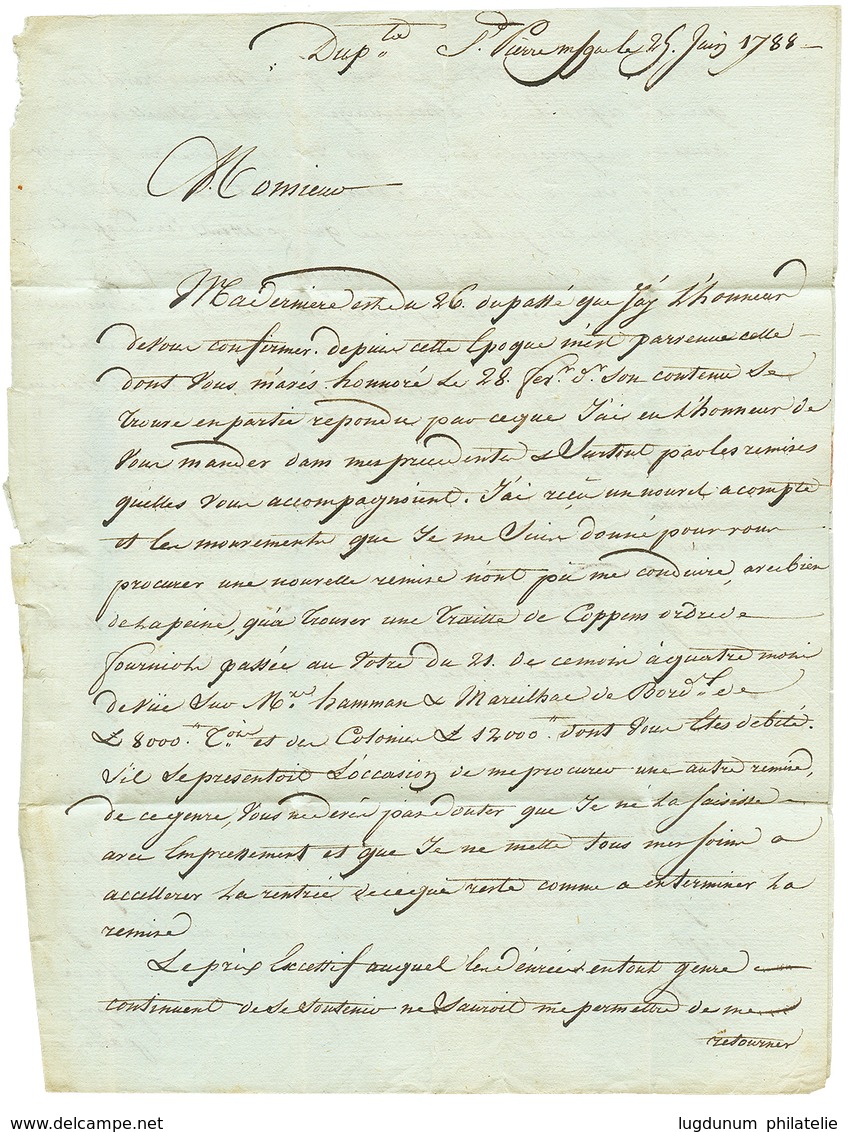 Dup.ta S.t Pierre m/que le 25. Juin 1788
Monsieur
Ma derniere est du 26. du passé que J'ay L'honneur
de Vous confirmer. depuis cette Epoque m'est parvenue celle
dont Vous m'avés honnoré Le 28. fev.r d.r son contenu Se
trouve en partie repondu par ce que J'ai eu L'honneur de
Vous mander dans mes precedentes & Surtout par les remises
quelles Vous accompagnoient. J'ai reçu un nouvel acompte
et les mouvements que Je me Suis donné pour vous
procurer une nouvelle remise n'ont pû me conduire, avec bien
de La peine, qu'a trouver une Traitte de Coppens ordre de
fourniols passée au Votre du 21. de ce mois à quatre mois
de Vüe Sur M.rs hamman & Mareilhac de Bord.x de
£ 8000.'' T.ois et des Colonies £ 12000.'' dont Vous Etes debité.
S'il Se presentoit L'occasion de me procurer une autre remise,
de ce genre, Vous ne devés pas douter que Je ne La Saisisse
avec Empressement et que Je ne mette tous mes Soins a
accellerer La rentrée de ce que reste comme a en terminer La
remise
Le prix Excessif auquel les dénrées en tout genre
continuent de Se Soutenir ne Sauroit me permettre de me
retourner
www.delcampe.net
lugdunum philatelie